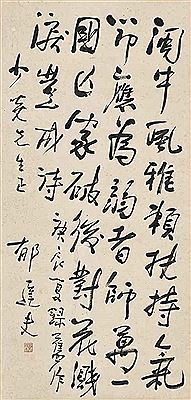 閩中風雅賴扶持氣
節應為弱者師萬一
國亡家破後對花濺
淚豈成詩
庚辰夏錄舊作
少堯先生正
郁達夫